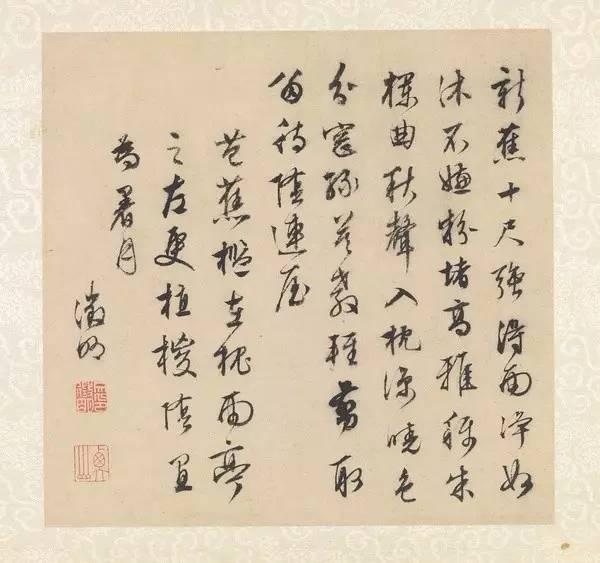 新蕉十尺強得雨淨如
沐不嫌粉堵高雅稱朱
欄曲秋聲入枕涼曉色
分窗綠莫教輕翦取
留待陰連屋
芭蕉檻在槐雨亭
之左更植椶陰宜
為暑月
徵明